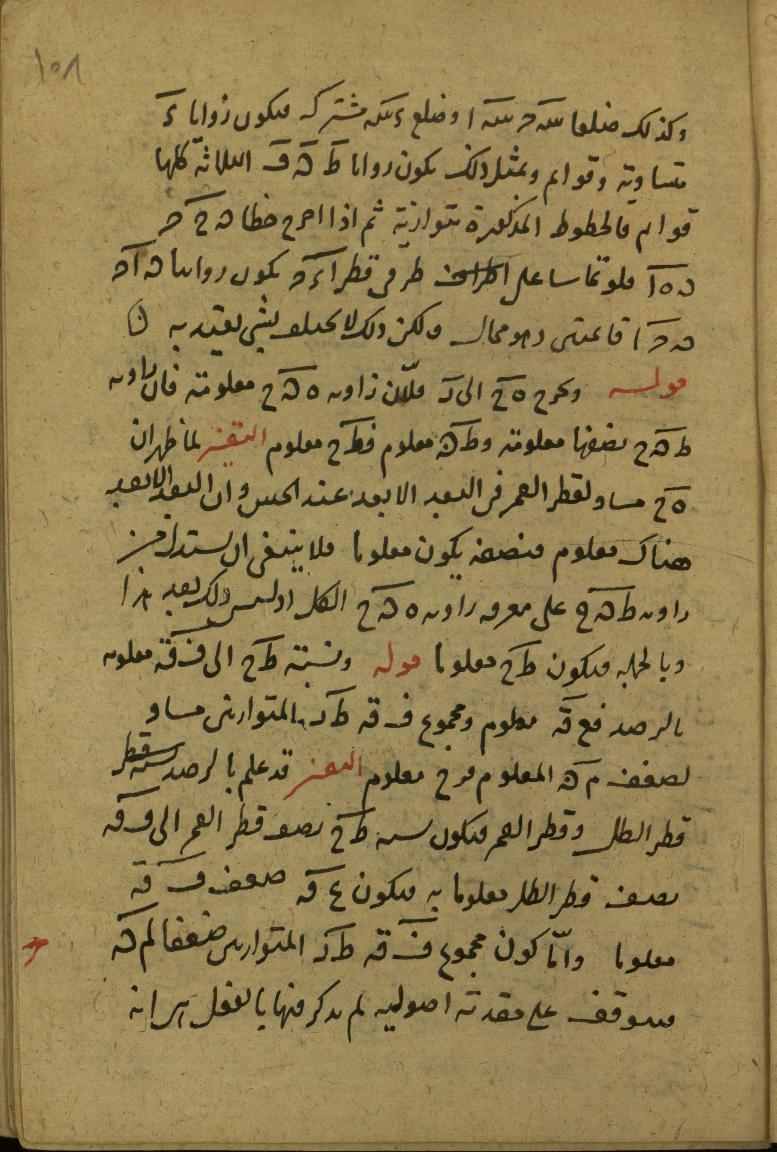 ١٥٨
وكذلك ضلعا سـ حـ سـ ا وضلع ءسـ مشترك فيكون زوايا ءَ
متساوية وقوائم وبمثل ذلك يكون زوايا ط هـ ف الثلاثة كلها
قوائم فالخطوط المذكورة متوازية ثم اذا اخرج خطا هـ ح حـ
هـ ه ا فلو تماسا على طرفى قطر ا ءَ حـ يكون زوايتا هـ ا حـ
هـ حـ ا قائمتين وهو محال ولكن ذلك لا يختلف بشى يعتد به
قوله ونخرج ه ح الى ر فلان زاوية ه هـ ح معلومة فان زاوية
ط هـ ح نصفها معلومة وط هـ معلوم فط ح معلوم التفسير لما ظهر ان
ه ح مساو لقطر القمر فى البعد الابعد عند الحس وان البعد الابعد
هناك معلوم فنصفه يكون معلوما فلا ينبغى ان يستدل من
زاوية ط هـ ح على معرفة زاوية ه هـ ح الكل اذ ليس ذلك بعد
وبالجملة فيكون ط ح معلوما قوله ونسبة ط ح الى ف ق معلومة
بالرصد فع ق معلوم ومجموع ف ق ط ر المتوازيين مساو
لضعف م هـ المعلوم فرح معلوم التفسير قد علم بالرصد نسبة قطر
قطر الظل وقطر القمر فيكون نسبة ط ح نصف قطر القمر الى ف ق
نصف قطر الظل معلوما به فيكون ع ق ضعف ف ق
معلوما وانما كون مجموع ف ق ط ر المتوازيين ضعفا لم هـ
فيتوقف على مقدمة اصولية لم يذكر فيها بالفعل